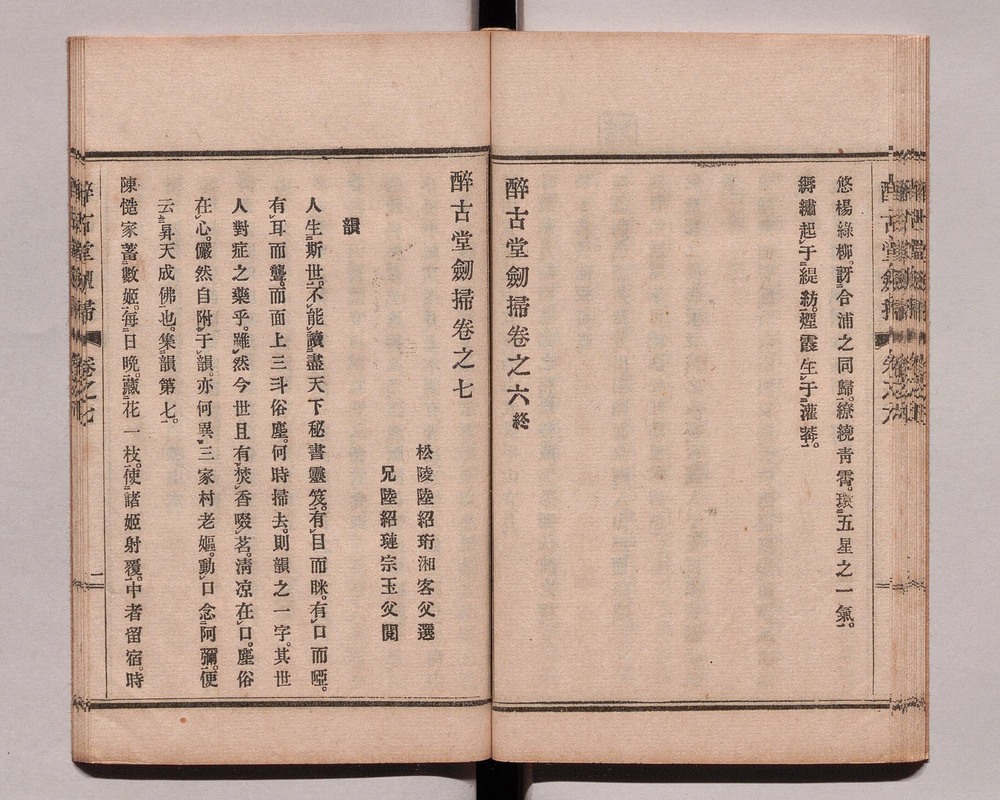 悠楊綠柳。訝合浦之同歸。繚繞靑霄。環五星之一氣。
縟繡起于緹紡。煙霞生于灌莽。
醉古堂劒掃卷之六終
醉古堂劒掃卷之七
松陵陸紹珩湘客父選
兄陸紹璉宗玉父閱
韻
人生斯世。不能讀盡天下秘書靈笈。有目而眯。有口而啞。
有耳而聾。而面上三斗俗塵。何時掃去。則韻之一字。其世
人對症之藥乎。雖然今世且有焚香啜茗。淸凉在口。塵俗
在心。儼然自附于韻。亦何異三家村老嫗。動口念阿彌。便
云昇天成佛也。集韻第七。
陳慥家蓄數姬。每日晚。藏花一枝。使諸姬射覆。中者留宿。時
醉古堂劒掃 卷之七 一